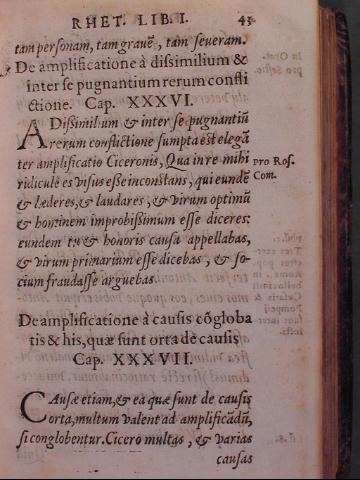 RHET. LIB. I. 43
tam personam, tam grauẽ, tam seueram.
De amplificatione à dissimilium &
inter se pugnantium rerum confli
ctione. Cap. XXXVI.
A Dissimilium & inter se pugnantiũ
rerum conflictione sumpta est elegã
ter amplificatio Ciceronis, Qua in re mihi
pro Ros.
ridiculè es visus esse inconstans, qui eundẽ
Com.
& læderes, & laudares, & virum optimũ
& hominem improbissimum esse diceres:
eundem tu & honoris causa appellabas,
& virum primarium esse dicebas, & so-
cium fraudasse arguebas.
De amplificatione à causis cõgloba
tis & his, quæ sunt orta de causis
Cap. XXXVII.
CAusæ etiam, & ea quæ sunt de causis
orta, multum valent ad amplificãdũ,
si conglobentur. Cicero multas, & varias
causas